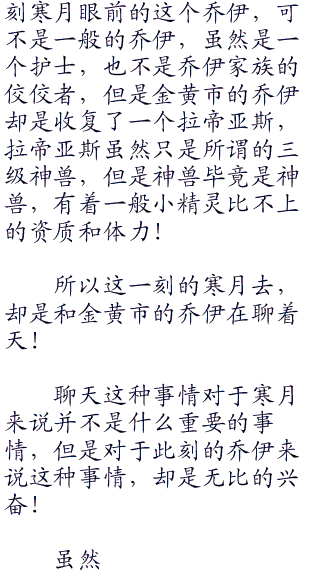 刻寒月眼前的这个乔伊，可
不是一般的乔伊，虽然是一
个护士，也不是乔伊家族的
佼佼者，但是金黄市的乔伊
却是收复了一个拉帝亚斯，
拉帝亚斯虽然只是所谓的三
级神兽，但是神兽毕竟是神
兽，有着一般小精灵比不上
的资质和体力！
所以这一刻的寒月去，
却是和金黄市的乔伊在聊着
天！
聊天这种事情对于寒月
来说并不是什么重要的事
情，但是对于此刻的乔伊来
说这种事情，却是无比的兴
奋！
虽然